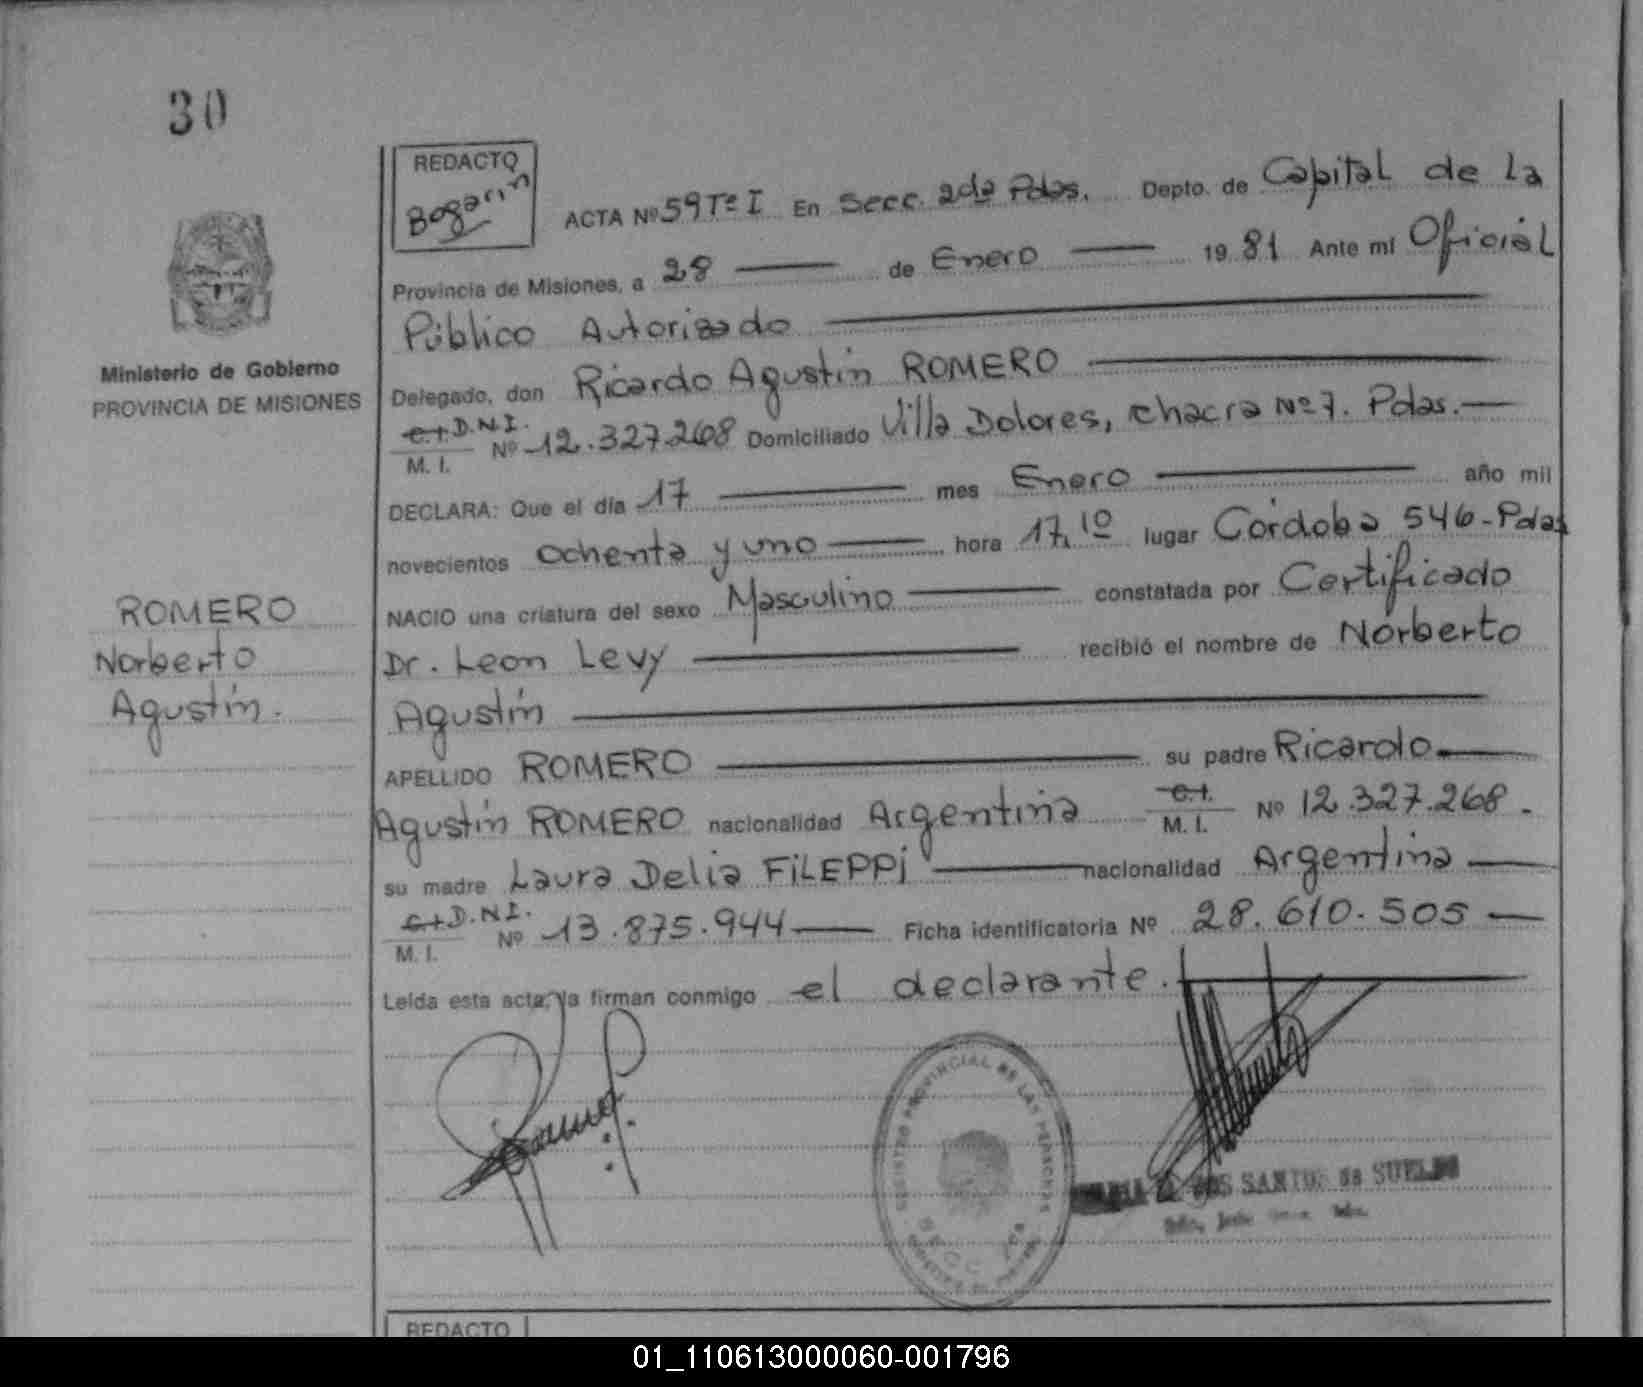 30
REDACTO
Bogarin
ACTA Nº 59 Tº I En Secc. 2da Pdas. Depto. de Capital de la
Provincia de Misiones, a 28 — de Enero — 1981 Ante mí Oficial
Público Autorizado —
Ministerio de Gobierno
PROVINCIA DE MISIONES
Delegado, don Ricardo Agustín ROMERO —
C.I. D.N.I.
M. I. Nº 12.327.268 Domiciliado Villa Dolores, chacra Nº 7. Pdas. —
DECLARA: Que el día 17 — mes Enero — año mil
novecientos ochenta y uno — hora 17,10 lugar Córdoba 546-Pdas
NACIO una criatura del sexo Masculino — constatada por Certificado
Dr. Leon Levy — recibió el nombre de Norberto
Agustín —
ROMERO
Norberto
Agustín.
APELLIDO ROMERO — su padre Ricardo —
Agustín ROMERO nacionalidad Argentina C.I. M. I. Nº 12.327.268.
su madre Laura Delia FiLEPPi — nacionalidad Argentina —
C.I. D.N.I.
M. I. Nº 13.875.944 — Ficha identificatoria Nº 28.610.505 —
Leída esta acta, la firman conmigo el declarante.
REGISTRO PROVINCIAL DE LAS PERSONAS
SANTOS de SUELDO
REDACTO
01_110613000060-001796